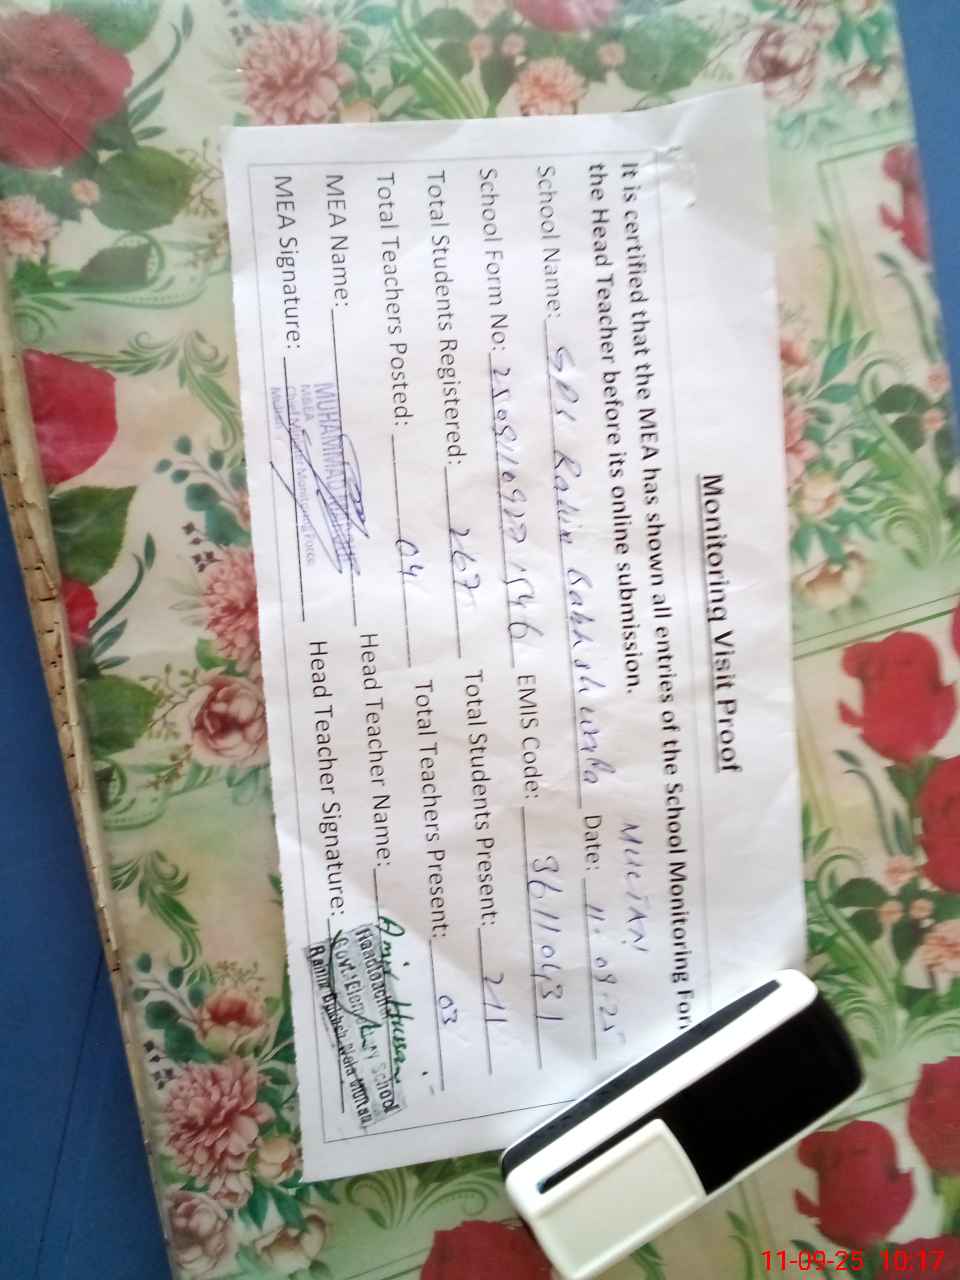 Monitoring Visit Proof
It is certified that the MEA has shown all entries of the School Monitoring For
the Head Teacher before its online submission.
MULTAN
School Name: SPS Rahim Bakhsh wala Date: 11.09.25
School Form No: 1546 EMIS Code: 36110431
Total Students Registered: 267 Total Students Present: 211
Total Teachers Posted: 04 Total Teachers Present: 03
MEA Name: MUHAMMAD Head Teacher Name: Amir Hussain
M&EA
Chief Minister Monitoring Force
Multan
MEA Signature: Head Teacher Signature:
Headteacher
Govt. Elementary School
Rahim Bakhsh Wala Multan
11-09-25 10:17